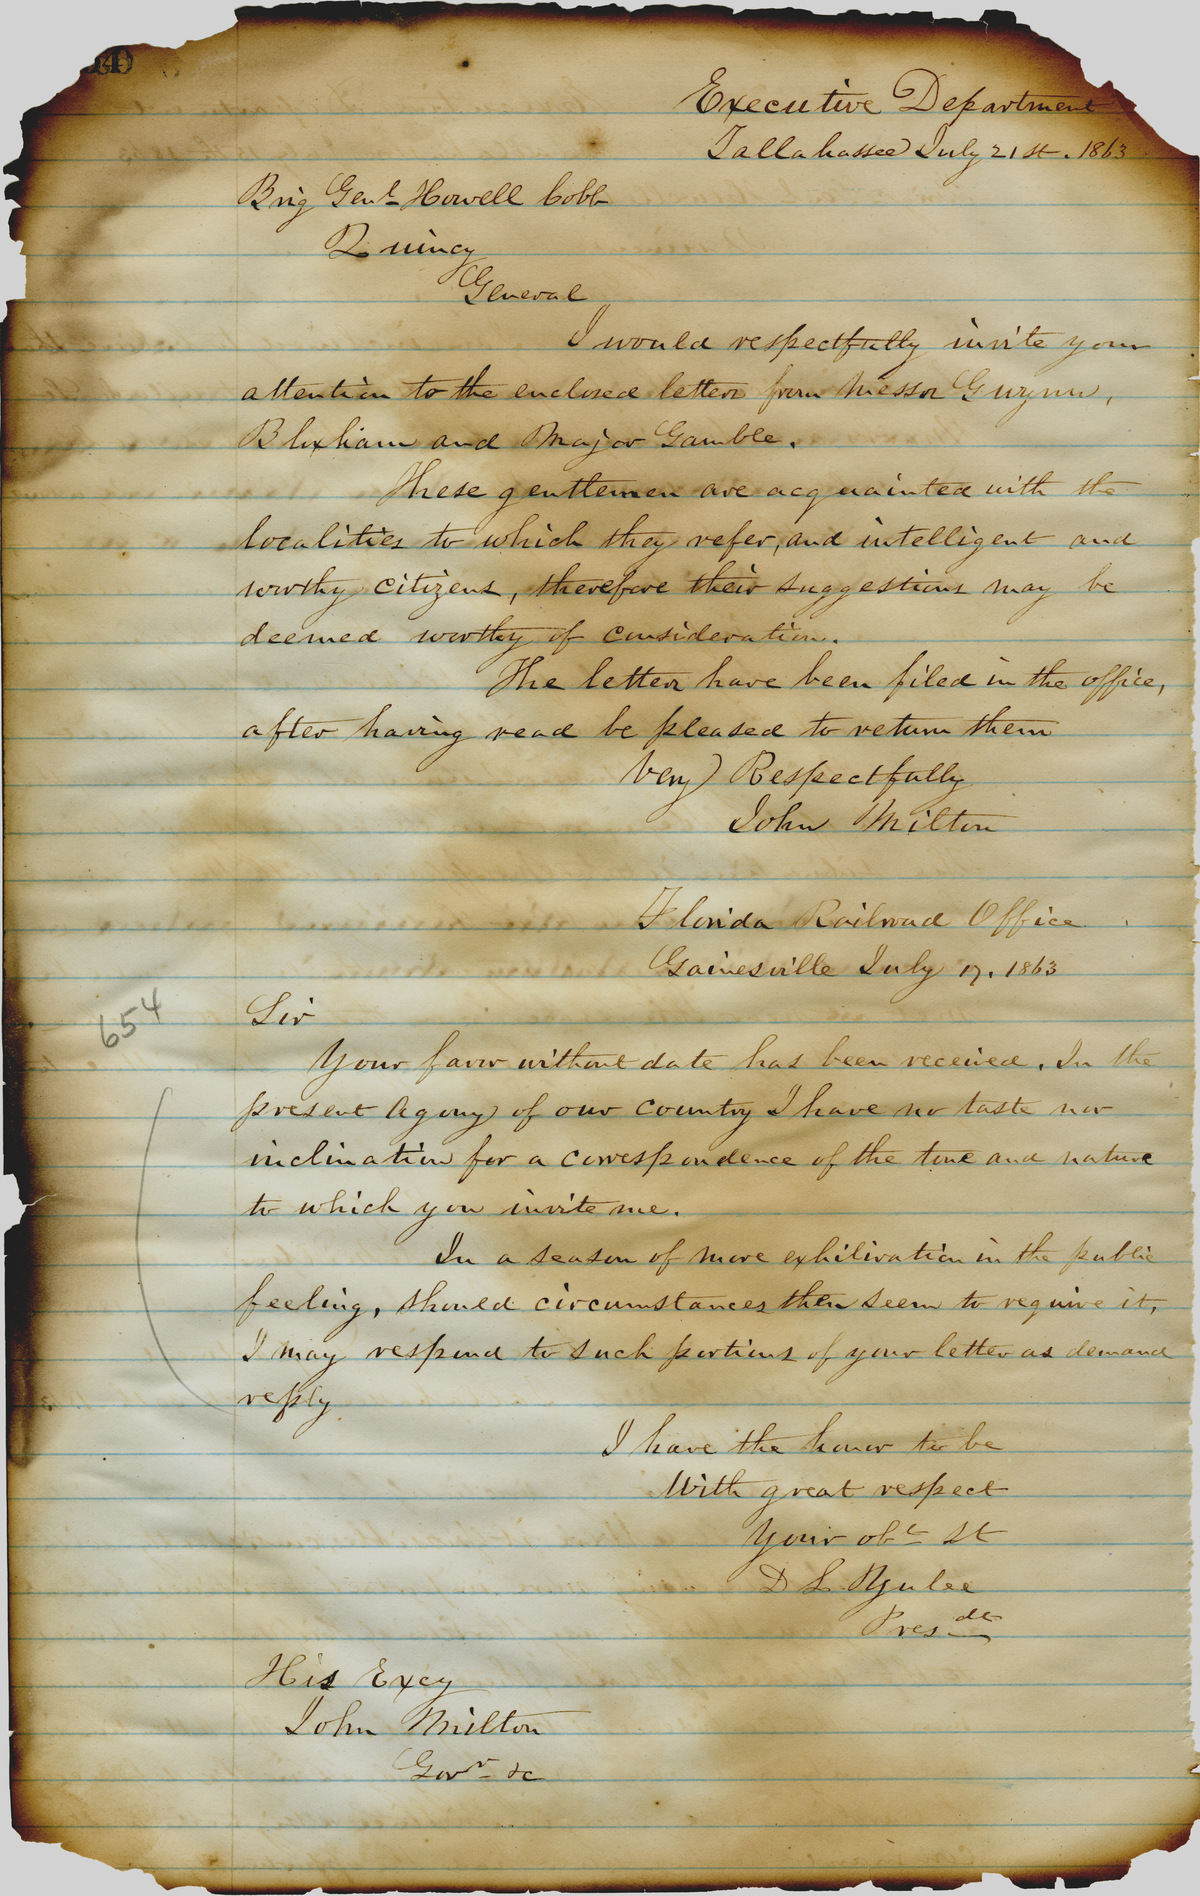 40
Executive Department
Tallahassee July 21st. 1863
Brig Genl Howell Cobb
Quincy
General
I would respectfully invite your
attention to the enclosed letters from Messrs Gwynn,
Bloxham and Major Gamble.
These gentlemen are acquainted with the
localities to which they refer, and intelligent and
worthy citizens, therefore their suggestions may be
deemed worthy of consideration.
The letters have been filed in the office,
after having read be pleased to return them
Very Respectfully
John Milton
Florida Railroad Office
Gainesville July 17. 1863
654
Sir
Your favor without date has been received. In the
present Agony of our country I have no taste nor
inclination for a correspondence of the tone and nature
to which you invite me.
In a season of more exhiliration in the public
feeling, should circumstances then seem to require it,
I may respond to such portions of your letter as demand
reply
I have the honor to be
With great respect
Your obt St
D L Yulee
Presdt
His Excy
John Milton
Govr &c